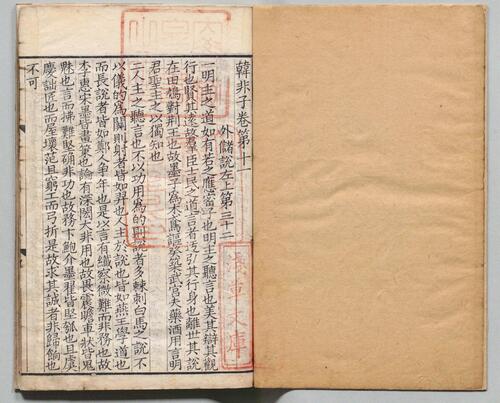 韓非子卷第十一
外儲說左上第三十二
一明主之道如有若之應宓子也明主之聽言也美其辯其觀
行也賢其遠故羣臣士民之道言者迂弘其行身也離世其說
在田鳩對荆王也故墨子爲木鳶謳癸築武宮夫藥酒用言明
君聖主之以獨知也
二人主之聽言也不以功用爲的則說者多棘刺白馬之說不
以儀的爲關則射者皆如羿也人主於說也皆如燕王學道也
而長說者皆如鄭人爭年也是以言有纖察微難而非務也故
李惠宋墨皆畫策也論有深閎大非用也故畏震瞻車狀皆鬼
魅也言而拂難堅确非功也故務卞鮑介墨翟皆堅瓠也且虞
慶詘匠也而屋壞范且窮工而弓折是故求其誠者非歸餉也
不可
淺草文庫